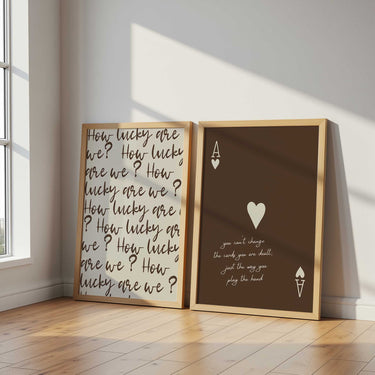 How lucky are
we? How lucky
are we? How
lucky are we?
How lucky are
we? How lucky
are we? How
lucky are we?
How lucky are
we? How lucky
are we? How
lucky are we?
A
you can't change
the cards you are dealt,
just the way you
play the hand
A